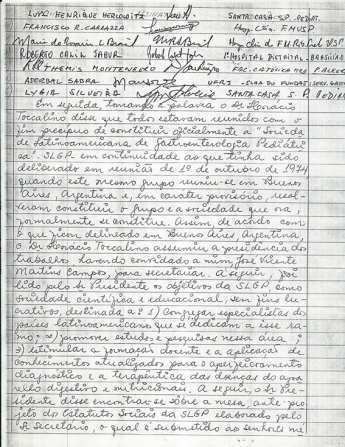 LUIS HENRIQUE HERCOWITZ SANTA CASA S.P. PEDIAT.
FRANCISCO R. CARRAZZA Hosp. Clin. FMUSP
ROBERTO CALIK SABUR HOSPITAL DISTRITAL - BRASILIA
ARTHEMIS MONTENEGRO FAC. CATÓLICA MED. P. ALEGRE
ADERBAL SABRA UFRJ
LYGIA SILVEIRA SANTA CASA S. P. PEDIA
Em seguida, tomando a palavra o Dr Horacio
Toccalino disse que todos estavam reunidos com o
fim precípuo de constituir oficialmente a "Socieda
de Latinoamericana de Gastroenterologia Pediátri
ca". SLGP. em continuidade ao que tinha sido
deliberado em reunião de 1º de outubro de 1974
quando este mesmo grupo reuniu-se em Buenos
Aires, Argentina e, em caráter provisório, resol-
veram constituir o Grupo e a sociedade que ora,
formalmente se constitue. Assim, de acordo com
o que ficou delineado em Buenos Aires, Argentina
o Dr Horácio Toccalino assumiu a presidência dos
trabalhos havendo convidado a mim, José Vicente
Martins Campos, para secretariar. A seguir, foi
lido pelo Sr Presidente os objetivos da SLGP, como
sociedade científica e educacional, sem fins lu-
crativos, destinada a: 1) Congregar especialistas dos
países latinoamericanos que se dedicam a esse ra-
mo; 2) promover estudos e pesquisas nessa área;
3) estimular a formação docente e a aplicação de
conhecimentos atualizados para o aperfeiçoamento
diagnóstico e a terapêutica das doenças do apa-
relho digestivo e nutricionais. A seguir, o Sr Pre-
sidente disse encontrar-se sôbre a mesa, ante pro
jeto do Estatutos Sociais da SLGP elaborado pelo
"A Secretário, o qual é submetido ao senhores me